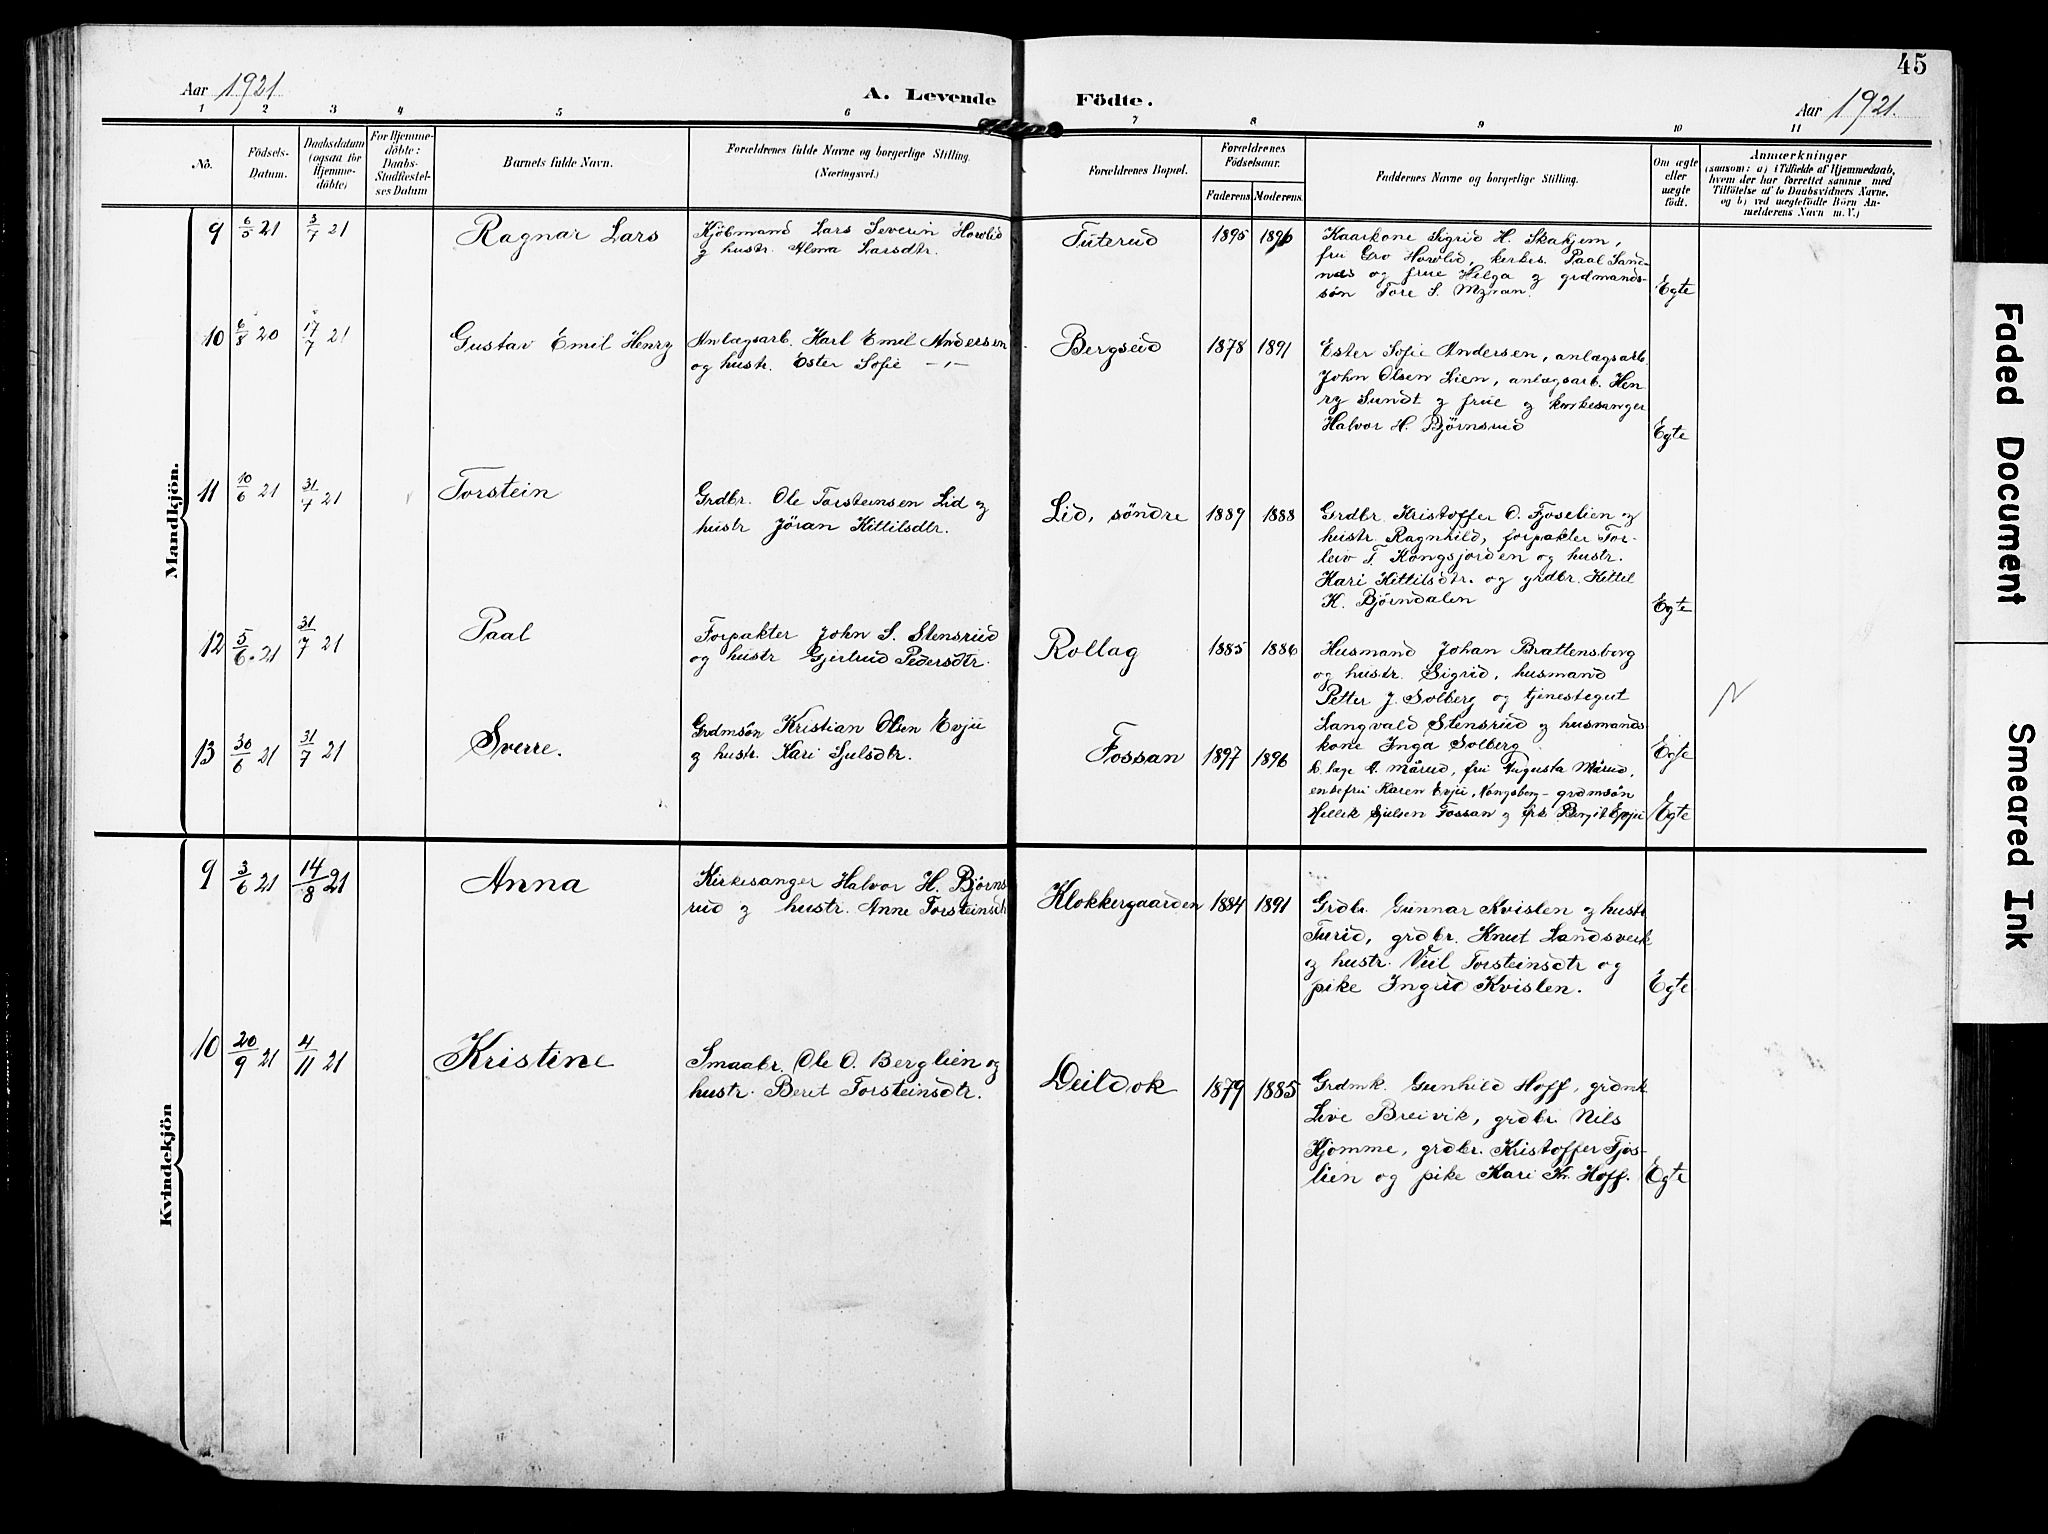 45
Aar 1921
A. Levende Födte.
Aar 1921.
1 2 3 4 5 6 7 8 9 10 11
No.
Födsels-Datum.
Daabsdatum (ogsaa for Hjemme-döbte)
For Hjemme-döbte: Daabs-Stadfæstel-ses Datum
Barnets fulde Navn.
Forældrenes fulde Navne og borgerlige Stilling.
(Næringsvei.)
Forældrenes Bopæl.
Forældrenes Födselsaar.
Faderens Moderens
Faddernes Navne og borgerlige Stilling.
Om ægte eller uægte födt.
Anmærkninger
(saasom: a) i Tilfælde af Hjemmedaab,
hvem der har forrettet samme med
Tilföielse af to Daabsvidners Navne,
og b) ved uægtefödte Börn An-
melderens Navn m. V.)
Mandkjön.
9 6/5 21 3/7 21 Ragnar Lars
Kjøbmand Lars Severin Hovlid
og hustr. Alma Larsdtr.
Tuterud 1895 1896
Kaarkone Sigrid H. Skahjem,
fru Gro Hovlid, kirkes. Paal Sand-
nes og frue Helga og grdmands-
søn Tore S. Myran.
Egte
10 6/8 20 17/7 21 Gustav Emil Henry
Anlægsarb. Karl Emil Andersen
og hustr. Ester Sofie -"-
Bergseid 1878 1891
Ester Sofie Andersen, anlægsarb.
John Olsen Lien, anlægsarb. Hen
ry Sundt og frue og kirkesanger
Halvor H. Bjørnsrud
Egte
11 10/6 21 31/7 21 Torstein
Grdbr. Ole Torsteinsen Lid og
hustr Jöran Kittilsdtr.
Lid, søndre 1889 1888
Grdbr. Kristoffer O. Fjoselien og
hustr. Ragnhild, forpakter Tor-
leiv T. Kongsjorden og hustr.
Kari Kittilsdtr. og grdbr. Kittil
K. Bjørndalen
Egte
12 5/6.21 31/7 21 Paal
Forpakter John S. Stensrud
og hustr Gjertrud Pedersdtr.
Rollag 1885 1886
Husmand Johan Brattensborg
og hustr. Sigrid, husmand
Petter J. Solberg og tjenestegut
Langvald Stensrud og husmands-
kone Inga Solberg
Egte
13 30/6 21 31/7 21 Sverre.
Grdmsøn Kristian Olsen Evju
og hustr. Kari Sjulsdtr.
Fossan 1897 1896
A. Mårud, fru Augusta Mårud,
enkefru Karen Evju, Kongsberg - grdmsøn
Hellik Sjulsen Fossan og frk Birgit Evju
Egte
Kvindekjön
9 3/6 21 14/8 21 Anna
Kirkesanger Halvor H. Björns
rud og hustr. Anne Torsteinsdtr
Klokkergaarden 1884 1891
Grdbr. Gunnar Kvislen og hustr
Turid, grdbr. Knut Landsverk
og hustr. Viel Torsteinsdtr og
pike Ingrid Kvislen.
Egte
10 20/9 21 4/11 21 Kristine
Smaabr. Ole O. Berglien og
hustr. Beret Torsteinsdtr.
Deildok 1879 1885
Grdmk. Gunhild Hoff, grdmk
Live Breivik, grdbr Nils
Kjomme, grdbr. Kristoffer Fjos-
lien og pike Kari Kr. Hoff.
Egte
Faded Document
Smeared Ink